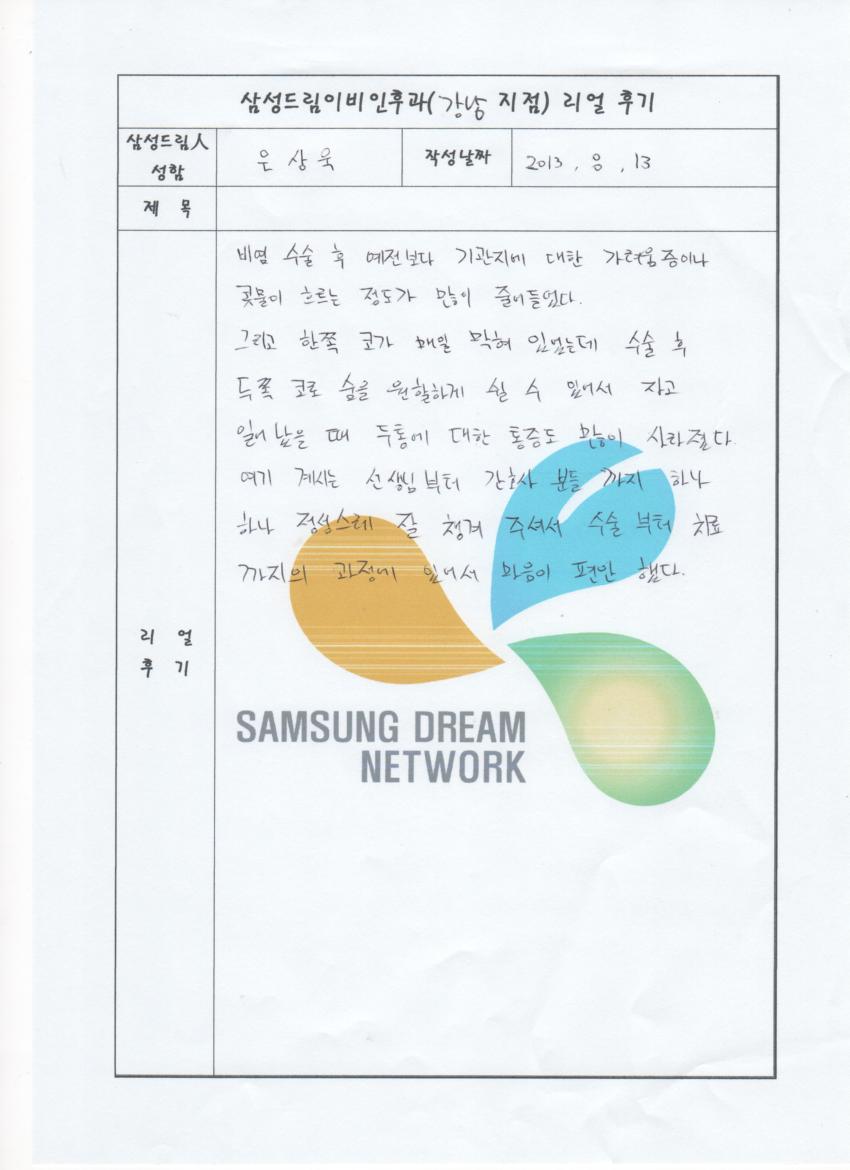 삼성드림이비인후과(강남 지점) 리얼 후기
삼성드림人 성함
은상욱
작성날짜
2013. 8. 13
제 목
리 얼 후 기
비염 수술 후 예전보다 기관지에 대한 가려움증이나
콧물이 흐르는 정도가 많이 줄어들었다.
그리고 한쪽 코가 매일 막혀 있었는데 수술 후
두쪽 코로 숨을 원할하게 쉴 수 있어서 자고
일어 났을 때 두통에 대한 통증도 많이 사라졌다.
여기 계시는 선생님부터 간호사 분들 까지 하나
하나 정성스레 잘 챙겨 주셔서 수술 부터 치료
까지의 과정에 있어서 마음이 편안 했다.
SAMSUNG DREAM
NETWORK